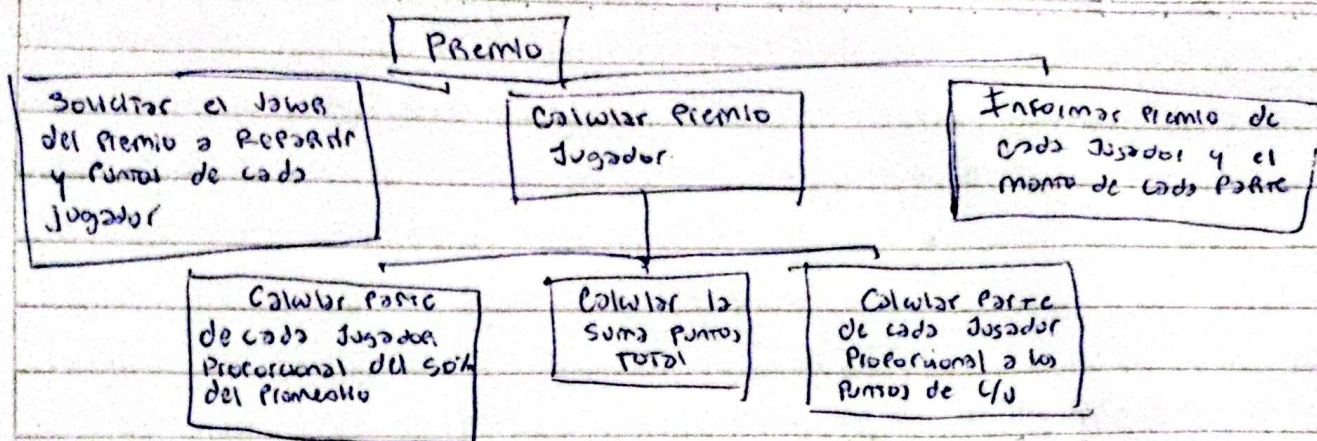 PRemio
Solicitar el valor
del Premio a Repartir
y Puntos de cada
jugador
Calcular Premio
Jugador
Informar Premio de
cada Jugador y el
monto de cada Parte
Calcular Parte
de cada Jugador
Proporcional del 50%
del
Calcular la
suma puntos
Total
Calcular Parte
de cada Jugador
Proporcional a los
Puntos de c/u